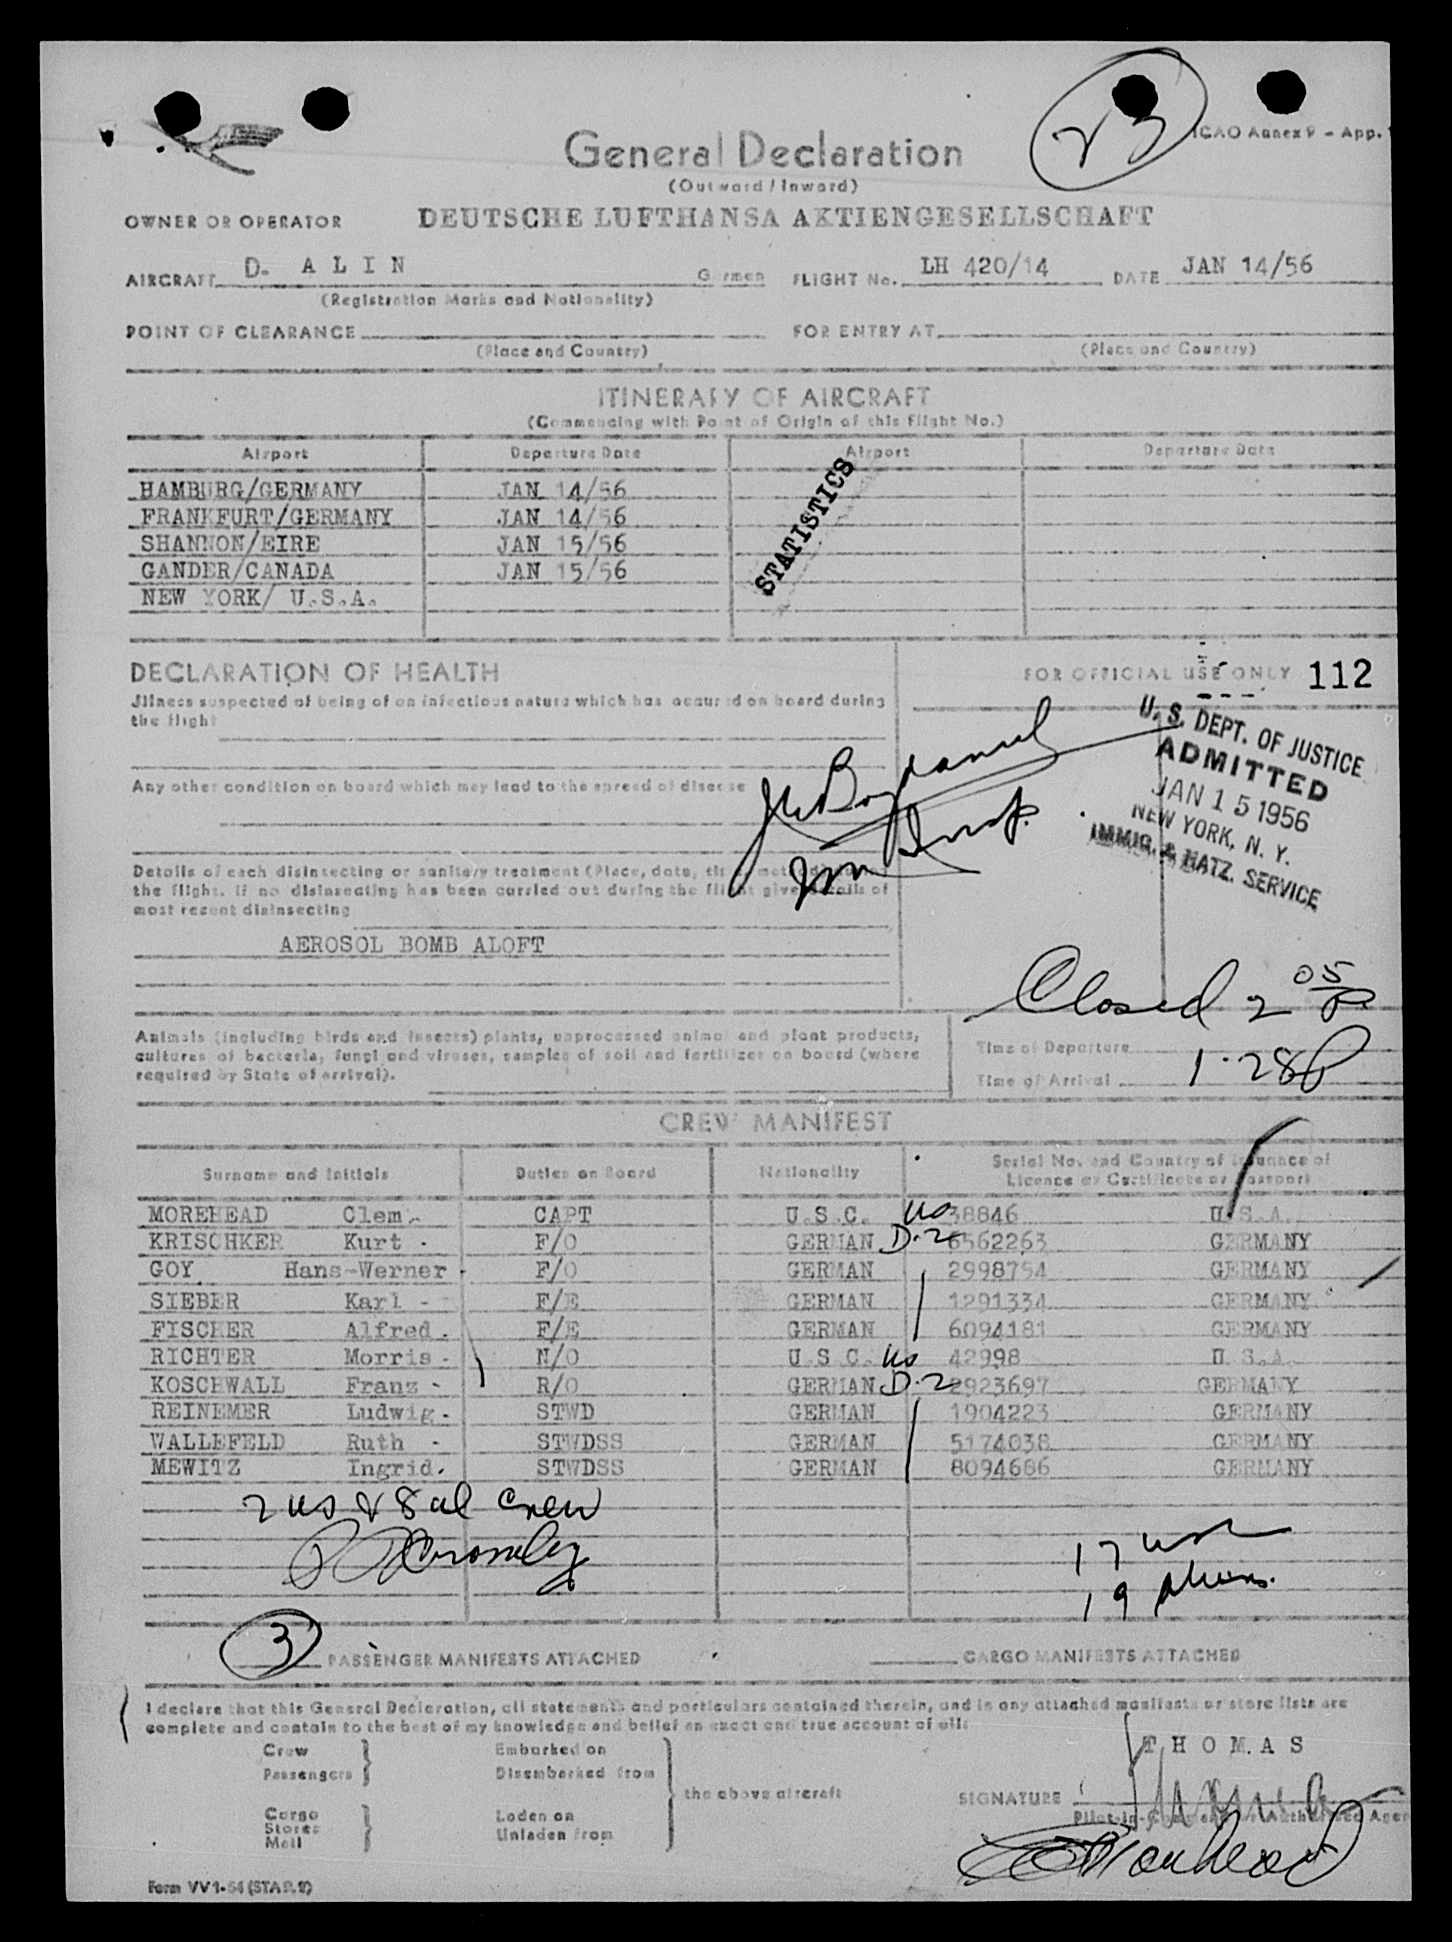 23
ICAO Annex 9 - App. 1
General Declaration
(Outward / Inward)
OWNER OR OPERATOR DEUTSCHE LUFTHANSA AKTIENGESELLSCHAFT
AIRCRAFT D. A L I N German FLIGHT No. LH 420/14 DATE JAN 14/56
(Registration Marks and Nationality)
POINT OF CLEARANCE FOR ENTRY AT
(Place and Country) (Place and Country)
ITINERARY OF AIRCRAFT
(Commencing with Point of Origin of this Flight No.)
Airport Departure Date Airport Departure Date
HAMBURG/GERMANY JAN 14/56
FRANKFURT/GERMANY JAN 14/56
SHANNON/EIRE JAN 15/56
GANDER/CANADA JAN 15/56
NEW YORK/ U.S.A.
STATISTICS
DECLARATION OF HEALTH
Illness suspected of being of an infectious nature which has occurred on board during
the flight
Any other condition on board which may lead to the spread of disease
Details of each disinsecting or sanitary treatment (Place, date, time, method) during
the flight. If no disinsecting has been carried out during the flight give details of
most recent disinsecting
AEROSOL BOMB ALOFT
FOR OFFICIAL USE ONLY 112
U. S. DEPT. OF JUSTICE
ADMITTED
JAN 15 1956
NEW YORK, N. Y.
IMMIG. & NATZ. SERVICE
Imm Insp.
Closed 2 05 P
Animals (including birds and insects) plants, unprocessed animal and plant products,
cultures of bacteria, fungi and viruses, samples of soil and fertilizer on board (where
required by State of arrival).
Time of Departure
Time of Arrival 1·28P
CREW MANIFEST
Surname and Initials Duties on Board Nationality Serial No. and Country of Issuance of
Licence or Certificate or Passport
MOREHEAD Clem. CAPT U.S.C. US 38846 U.S.A.
KRISCHKER Kurt F/O GERMAN D-2 6562263 GERMANY
GOY Hans-Werner F/O GERMAN 2998754 GERMANY
SIEBER Karl F/E GERMAN 1291334 GERMANY
FISCHER Alfred F/E GERMAN 6094181 GERMANY
RICHTER Morris N/O U.S.C. US 42998 U.S.A.
KOSCHWALL Franz R/O GERMAN D-2 2923697 GERMANY
REINEMER Ludwig STWD GERMAN 1904223 GERMANY
WALLEFELD Ruth STWDSS GERMAN 5174038 GERMANY
MEWITZ Ingrid. STWDSS GERMAN 8094686 GERMANY
2 US & 8 al Crew
17
19 Aliens.
3 PASSENGER MANIFESTS ATTACHED CARGO MANIFESTS ATTACHED
I declare that this General Declaration, all statements and particulars contained therein, and in any attached manifests or store lists are
complete and contain to the best of my knowledge and belief an exact and true account of all:
Crew Embarked on
Passengers Disembarked from
the above aircraft
Cargo Laden on
Stores Unladen from
Mail
T H O M A S
SIGNATURE
Pilot-in-Command or Authorized Agent
Form VV 1-54 (STAR.2)